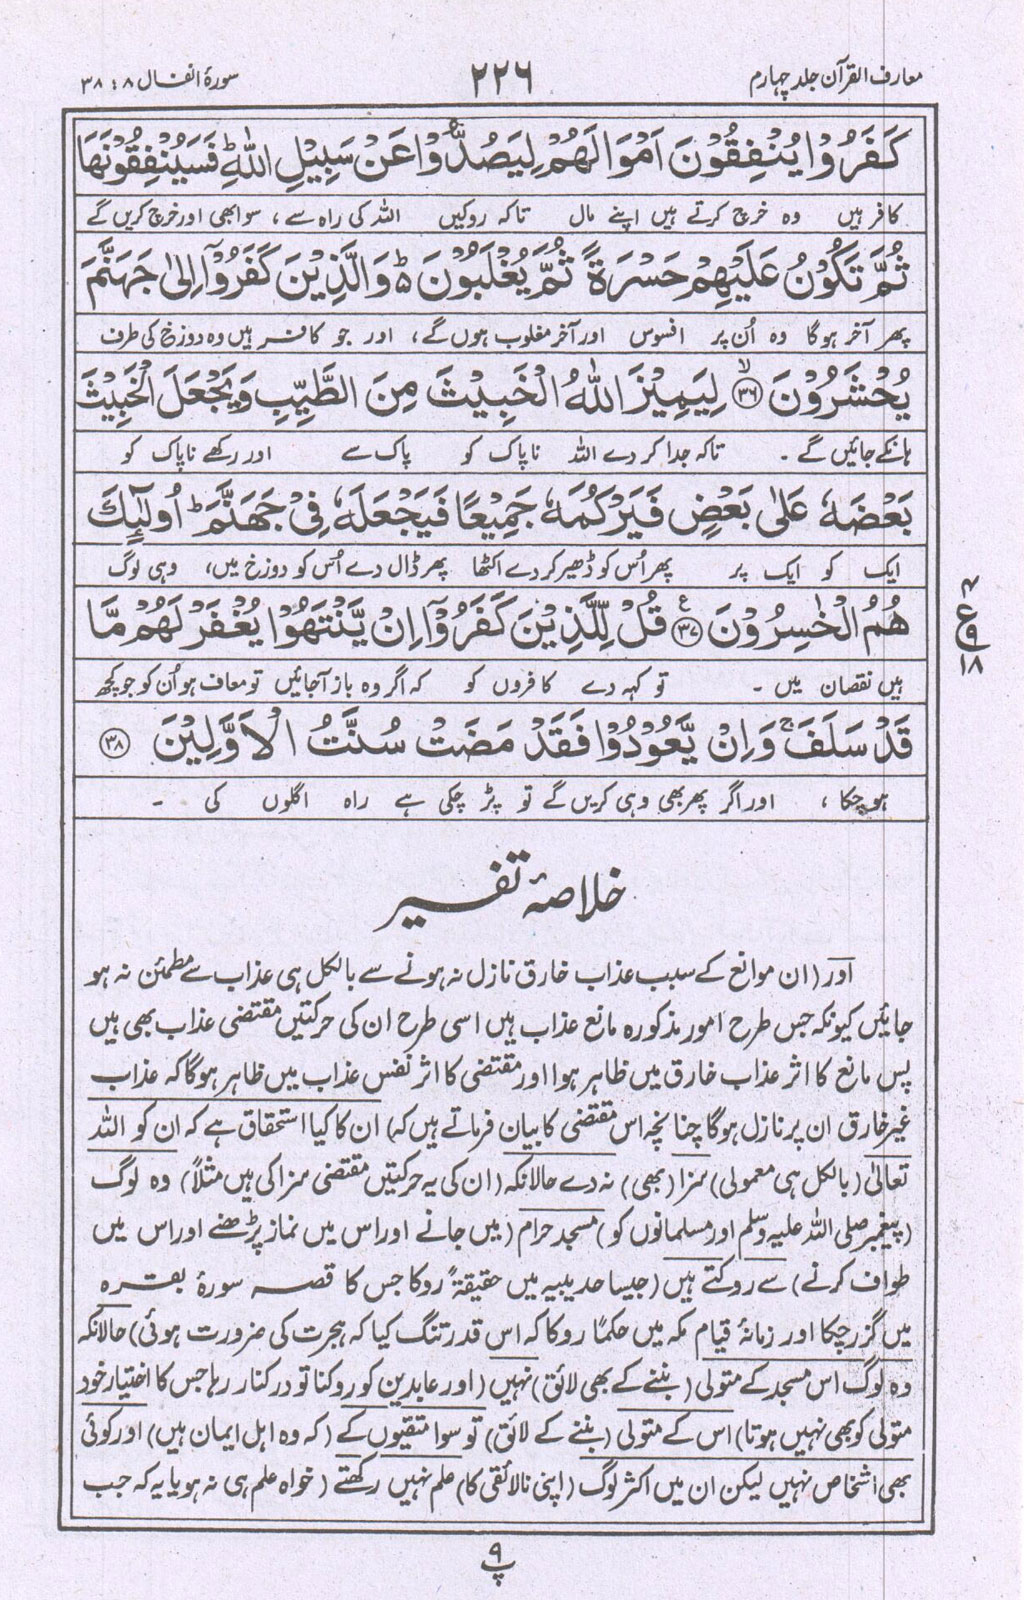 معارف القرآن جلد چہارم
۲۲۶
سورۂ انفال ۸ : ۳۸
كَفَرُوۡا يُنۡفِقُوۡنَ اَمۡوَالَهُمۡ لِيَصُدُّوۡا عَنۡ سَبِيۡلِ اللّٰهِ ؕ فَسَيُنۡفِقُوۡنَهَا
کافر ہیں وہ خرچ کرتے ہیں اپنے مال تاکہ روکیں اللہ کی راہ سے ، سو ابھی اور خرچ کریں گے
ثُمَّ تَكُوۡنُ عَلَيۡهِمۡ حَسۡرَةً ثُمَّ يُغۡلَبُوۡنَ ۬ؕ وَالَّذِيۡنَ كَفَرُوۡۤا اِلٰى جَهَنَّمَ
پھر آخر ہوگا وہ اُن پر افسوس اور آخر مغلوب ہوں گے ، اور جو کافر ہیں وہ دوزخ کی طرف
يُحۡشَرُوۡنَ ۙ﴿۳۶﴾ لِيَمِيۡزَ اللّٰهُ الۡخَبِيۡثَ مِنَ الطَّيِّبِ وَيَجۡعَلَ الۡخَبِيۡثَ
ہانکے جائیں گے ۔ تاکہ جدا کر دے اللہ ناپاک کو پاک سے اور رکھے ناپاک کو
بَعۡضَهٗ عَلٰى بَعۡضٍ فَيَرۡكُمَهٗ جَمِيۡعًا فَيَجۡعَلَهٗ فِىۡ جَهَنَّمَ ؕ اُولٰٓئِكَ
ایک کو ایک پر پھر اُس کو ڈھیر کر دے اکٹھا پھر ڈال دے اُس کو دوزخ میں ، وہی لوگ
هُمُ الۡخٰسِرُوۡنَ ﴿۳۷﴾ ع قُلْ لِّلَّذِيۡنَ كَفَرُوۡۤا اِنۡ يَّنۡتَهُوۡا يُغۡفَرۡ لَهُمۡ مَّا
ع ۹ ۱۸
ہیں نقصان میں ۔ تو کہہ دے کافروں کو کہ اگر وہ باز آجائیں تو معاف ہو اُن کو جو کچھ
قَدۡ سَلَفَ ۚ وَاِنۡ يَّعُوۡدُوۡا فَقَدۡ مَضَتۡ سُنَّتُ الۡاَوَّلِيۡنَ ﴿۳۸﴾
ہوچکا ، اور اگر پھر بھی وہی کریں گے تو پڑ چکی ہے راہ اگلوں کی ۔
خلاصۂ تفسیر
اور (ان موانع کے سبب عذاب خارق نازل نہ ہونے سے بالکل ہی عذاب سے مطمئن نہ ہو
جائیں کیونکہ جس طرح امور مذکورہ مانع عذاب ہیں اسی طرح ان کی حرکتیں مقتضی عذاب بھی ہیں
پس مانع کا اثر عذاب خارق میں ظاہر ہوا اور مقتضی کا اثر نفس عذاب میں ظاہر ہوگا کہ عذاب
غیر خارق ان پر نازل ہوگا چنانچہ اس مقتضی کا بیان فرماتے ہیں کہ) ان کا کیا استحقاق ہے کہ ان کو اللہ
تعالیٰ (بالکل ہی معمولی) سزا (بھی) نہ دے حالانکہ (ان کی یہ حرکتیں مقتضی سزا کی ہیں مثلاً) وہ لوگ
(پیغمبر صلی اللہ علیہ وسلم اور مسلمانوں کو) مسجد حرام (میں جانے اور اس میں نماز پڑھنے اور اس میں
طواف کرنے) سے روکتے ہیں (جیسا حدیبیہ میں حقیقۃً روکا جس کا قصہ سورۂ بقرہ
میں گزر چکا اور زمانۂ قیام مکہ میں حکماً روکا کہ اس قدر تنگ کیا کہ ہجرت کی ضرورت ہوئی) حالانکہ
وہ لوگ اس مسجد کے متولی (بننے کے بھی لائق) نہیں (اور عابدین کو روکنا تو درکنار رہا جس کا اختیار خود
متولی کو بھی نہیں ہوتا) اس کے متولی (بننے کے لائق) تو سوا متقیوں کے (کہ وہ اہل ایمان ہیں) اور کوئی
بھی اشخاص نہیں لیکن ان میں اکثر لوگ (اپنی نالائقی کا) علم نہیں رکھتے (خواہ علم ہی نہ ہو یا یہ کہ جب
۹
پ